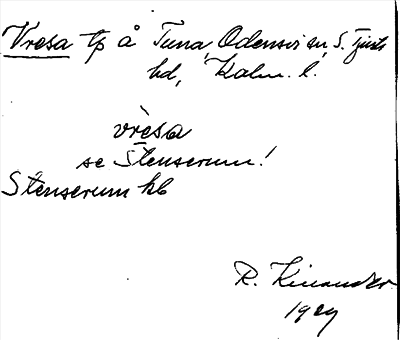 Vresa tp å Tuna, Odensvi sn, S. Tjusts
hd, Kalm. l.
vrèsa
se Stenserum!
Stenserum hb
R. Kinander
1929